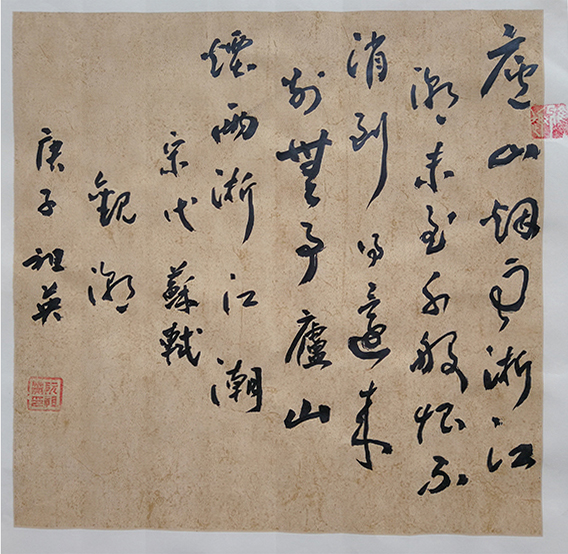 廬山烟雨浙江
潮未至千般恨不
消到得還來
别無事廬山
煙雨浙江潮
宋代蘇軾
觀潮
庚子祖英